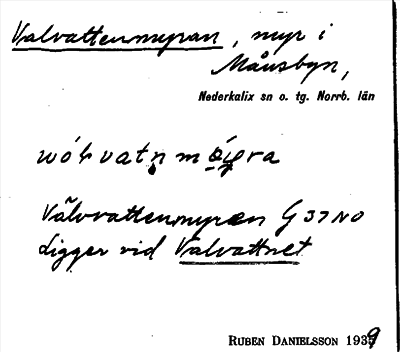 Valvattenmyran, myr i
Månsbyn,
Nederkalix sn o. tg. Norrb. län
Välvvattenmyren G 37 NO
Ligger vid Valvattnet
RUBEN DANIELSSON 1939